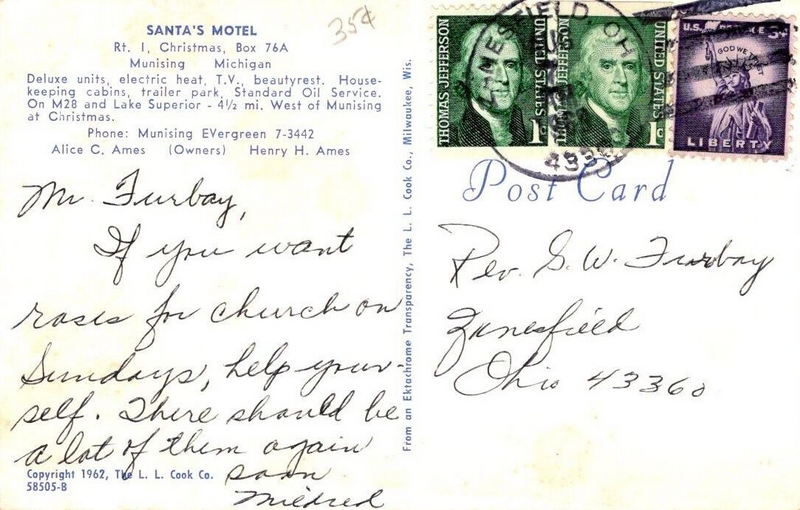 SANTA'S MOTEL
Rt. 1, Christmas, Box 76A
Munising Michigan
Deluxe units, electric heat, T.V., beautyrest. House-
keeping cabins, trailer park, Standard Oil Service.
On M28 and Lake Superior - 4½ mi. West of Munising
at Christmas.
Phone: Munising EVergreen 7-3442
Alice C. Ames (Owners) Henry H. Ames
35¢
Mr. Furbay,
If you want
roses for church on
Sundays, help your-
self. There should be
a lot of them again
soon
Mildred
Copyright 1962, The L. L. Cook Co.
58505-B
From an Ektachrome Transparency, The L. L. Cook Co., Milwaukee, Wis.
THOMAS JEFFERSON
UNITED STATES
1c
THOMAS JEFFERSON
UNITED STATES
1c
U.S. POSTAGE 3¢
IN GOD WE TRUST
LIBERTY
ZANESFIELD, OH
Post Card
Rev. G. W. Furbay
Zanesfield
Ohio 43360